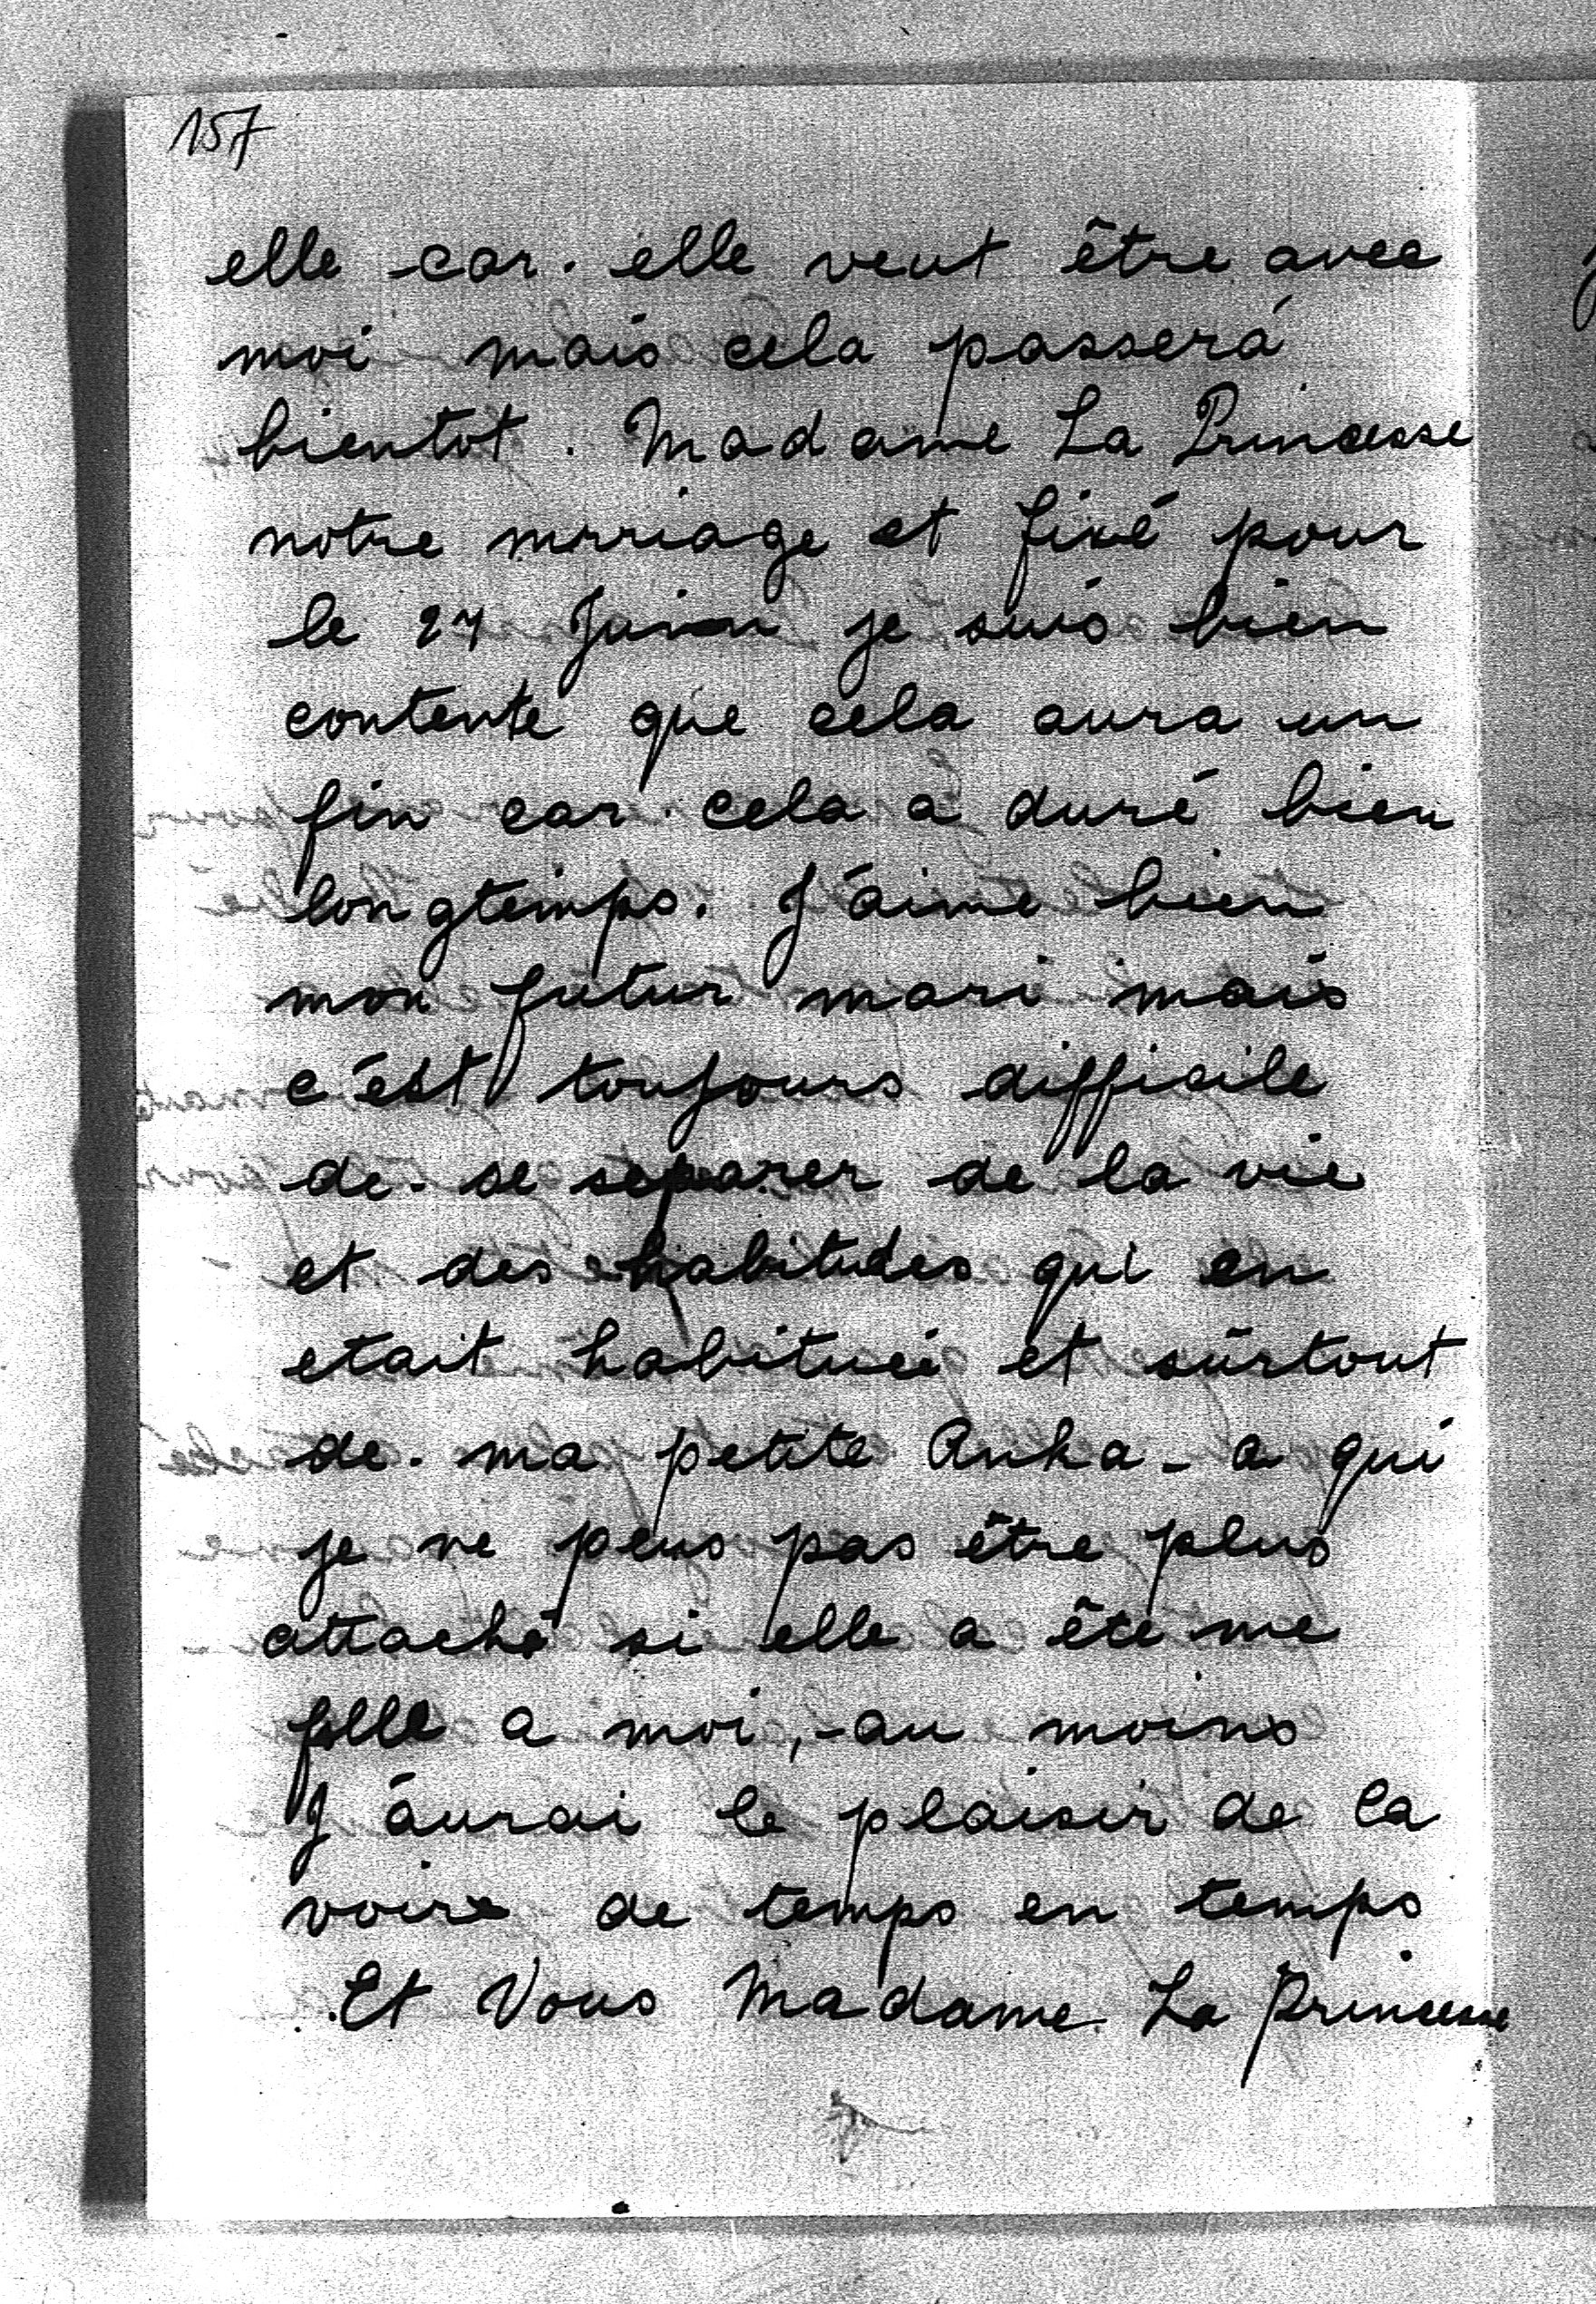 157
elle car. elle veut être avec
moi mais cela passerá
bientot. Madame La Princesse
notre mrriage et fixé pour
le 27 Juin je suis bien
contente que cela aura un
fin car. cela a duré bien
longtemps. J'aime bien
mon futur mari mais
c'est toujours difficile
de. se separer de la vie
et des habitudes qui en
etait habituée et sûrtout
de. ma petite Anka - a qui
je ne peus pas être plus
attaché si elle a êté me
fille a moi, - au moins
J'aurai le plaisir de la
voire de temps en temps
. Et Vous Madame La Princesse